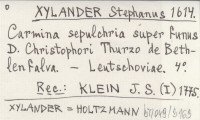 XYLANDER Stephanus 1614.
Carmina sepulchria super funus
D. Christophori Thurzo de Beth-
lenfalva. - Leutschoviae. 4°.
Rec.: KLEIN J. S. (I) 1775.
XYLANDER = HOLTZMANN